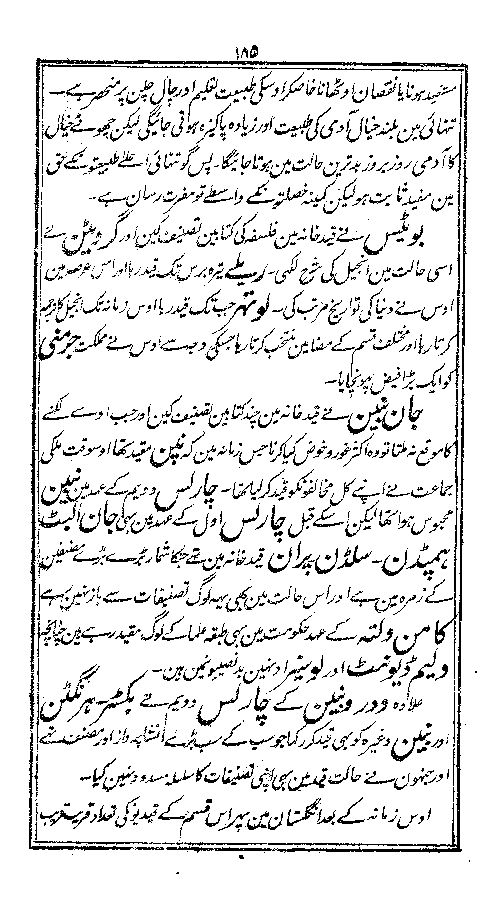 ۱۸۵
مستفید ہونا یا نقصان اوٹھانا خاصکر اوسکی طبیعت تعلیم اور چال چلن پر منحصر ہے۔
تنہائی مین بلند خیال آدمی کی طبیعت اور زیادہ پاکیزہ ہوتی جائیگی لیکن چھوٹے خیال
کا آدمی روز بروز بدترین حالت مین ہوتا جائیگا۔ پس گو تنہائی اعلے طبیعتونکے حق
مین مفید ثابت ہو لیکن کمینہ خصلتونکے واسطے تو مضرت رسان ہے۔
بوٹیس نے قیدخانہ مین فلسفہ کی کتابین تصنیف کین اور گروٹیس نے
اسی حالت مین انجیل کی شرح لکھی۔ ریلے تیرہ برس تک قید رہا اور اس عرصہ مین
اوس نے دنیا کی تواریخ مرتب کی۔ لوتھر جب تک قید رہا اوس زمانہ تک انجیل کا ترجمہ
کرتا رہا اور مختلف قسم کے مضامین منتخب کرتا رہا جسکی وجہ سے اوس نے مملکت جرمنی
کو ایک بڑا فیض پہونچایا۔
جان بنین نے قیدخانہ مین چند کتابین تصنیف کین اور جب اوسے لکھنے
کا موقع نہ ملتا تو وہ اکثر غور و خوض کیا کرتا جس زمانہ مین کہ بنین مقید تھا اوسوقت ملکی
جماعت نے اپنے کل مخالفونکو قید کر لیا تھا۔ چارلس دویم کے عہد مین بنین
محبوس ہوا تھا لیکن اسکے قبل چارلس اول کے عہد مین بہی جان الیٹ
ہمپڈن۔ سلڈن پران قیدخانہ مین تھے جنکا شمار بڑے بڑے مصنفین
کے زمرہ مین ہے اور اس حالت مین بھی یہہ لوگ تصنیفات سے باز نہین رہے
کامن ولتہ کے عہد حکومت مین بہی طبقہ علما کے لوگ مقید رہے ہین چنانچہ
ولیم ڈیونمٹ اور لوسیر اونہین بدنصیبونمین ہین۔
علاوہ وِدر و بنین کے چارلس دویم نے بکسٹر۔ ہرنگٹن
اور بنین وغیرہ کو بھی قید کر رکھا جو سب کے سب بڑے انشا پرداز اور مصنف تھے
اور جنہون نے حالت قید مین بہی اپنی تصنیفات کا سلسلہ مسدود نہین کیا۔
اوس زمانہ کے بعد انگلستان مین پہر اس قسم کے قیدیونکی تعداد قریب قریب